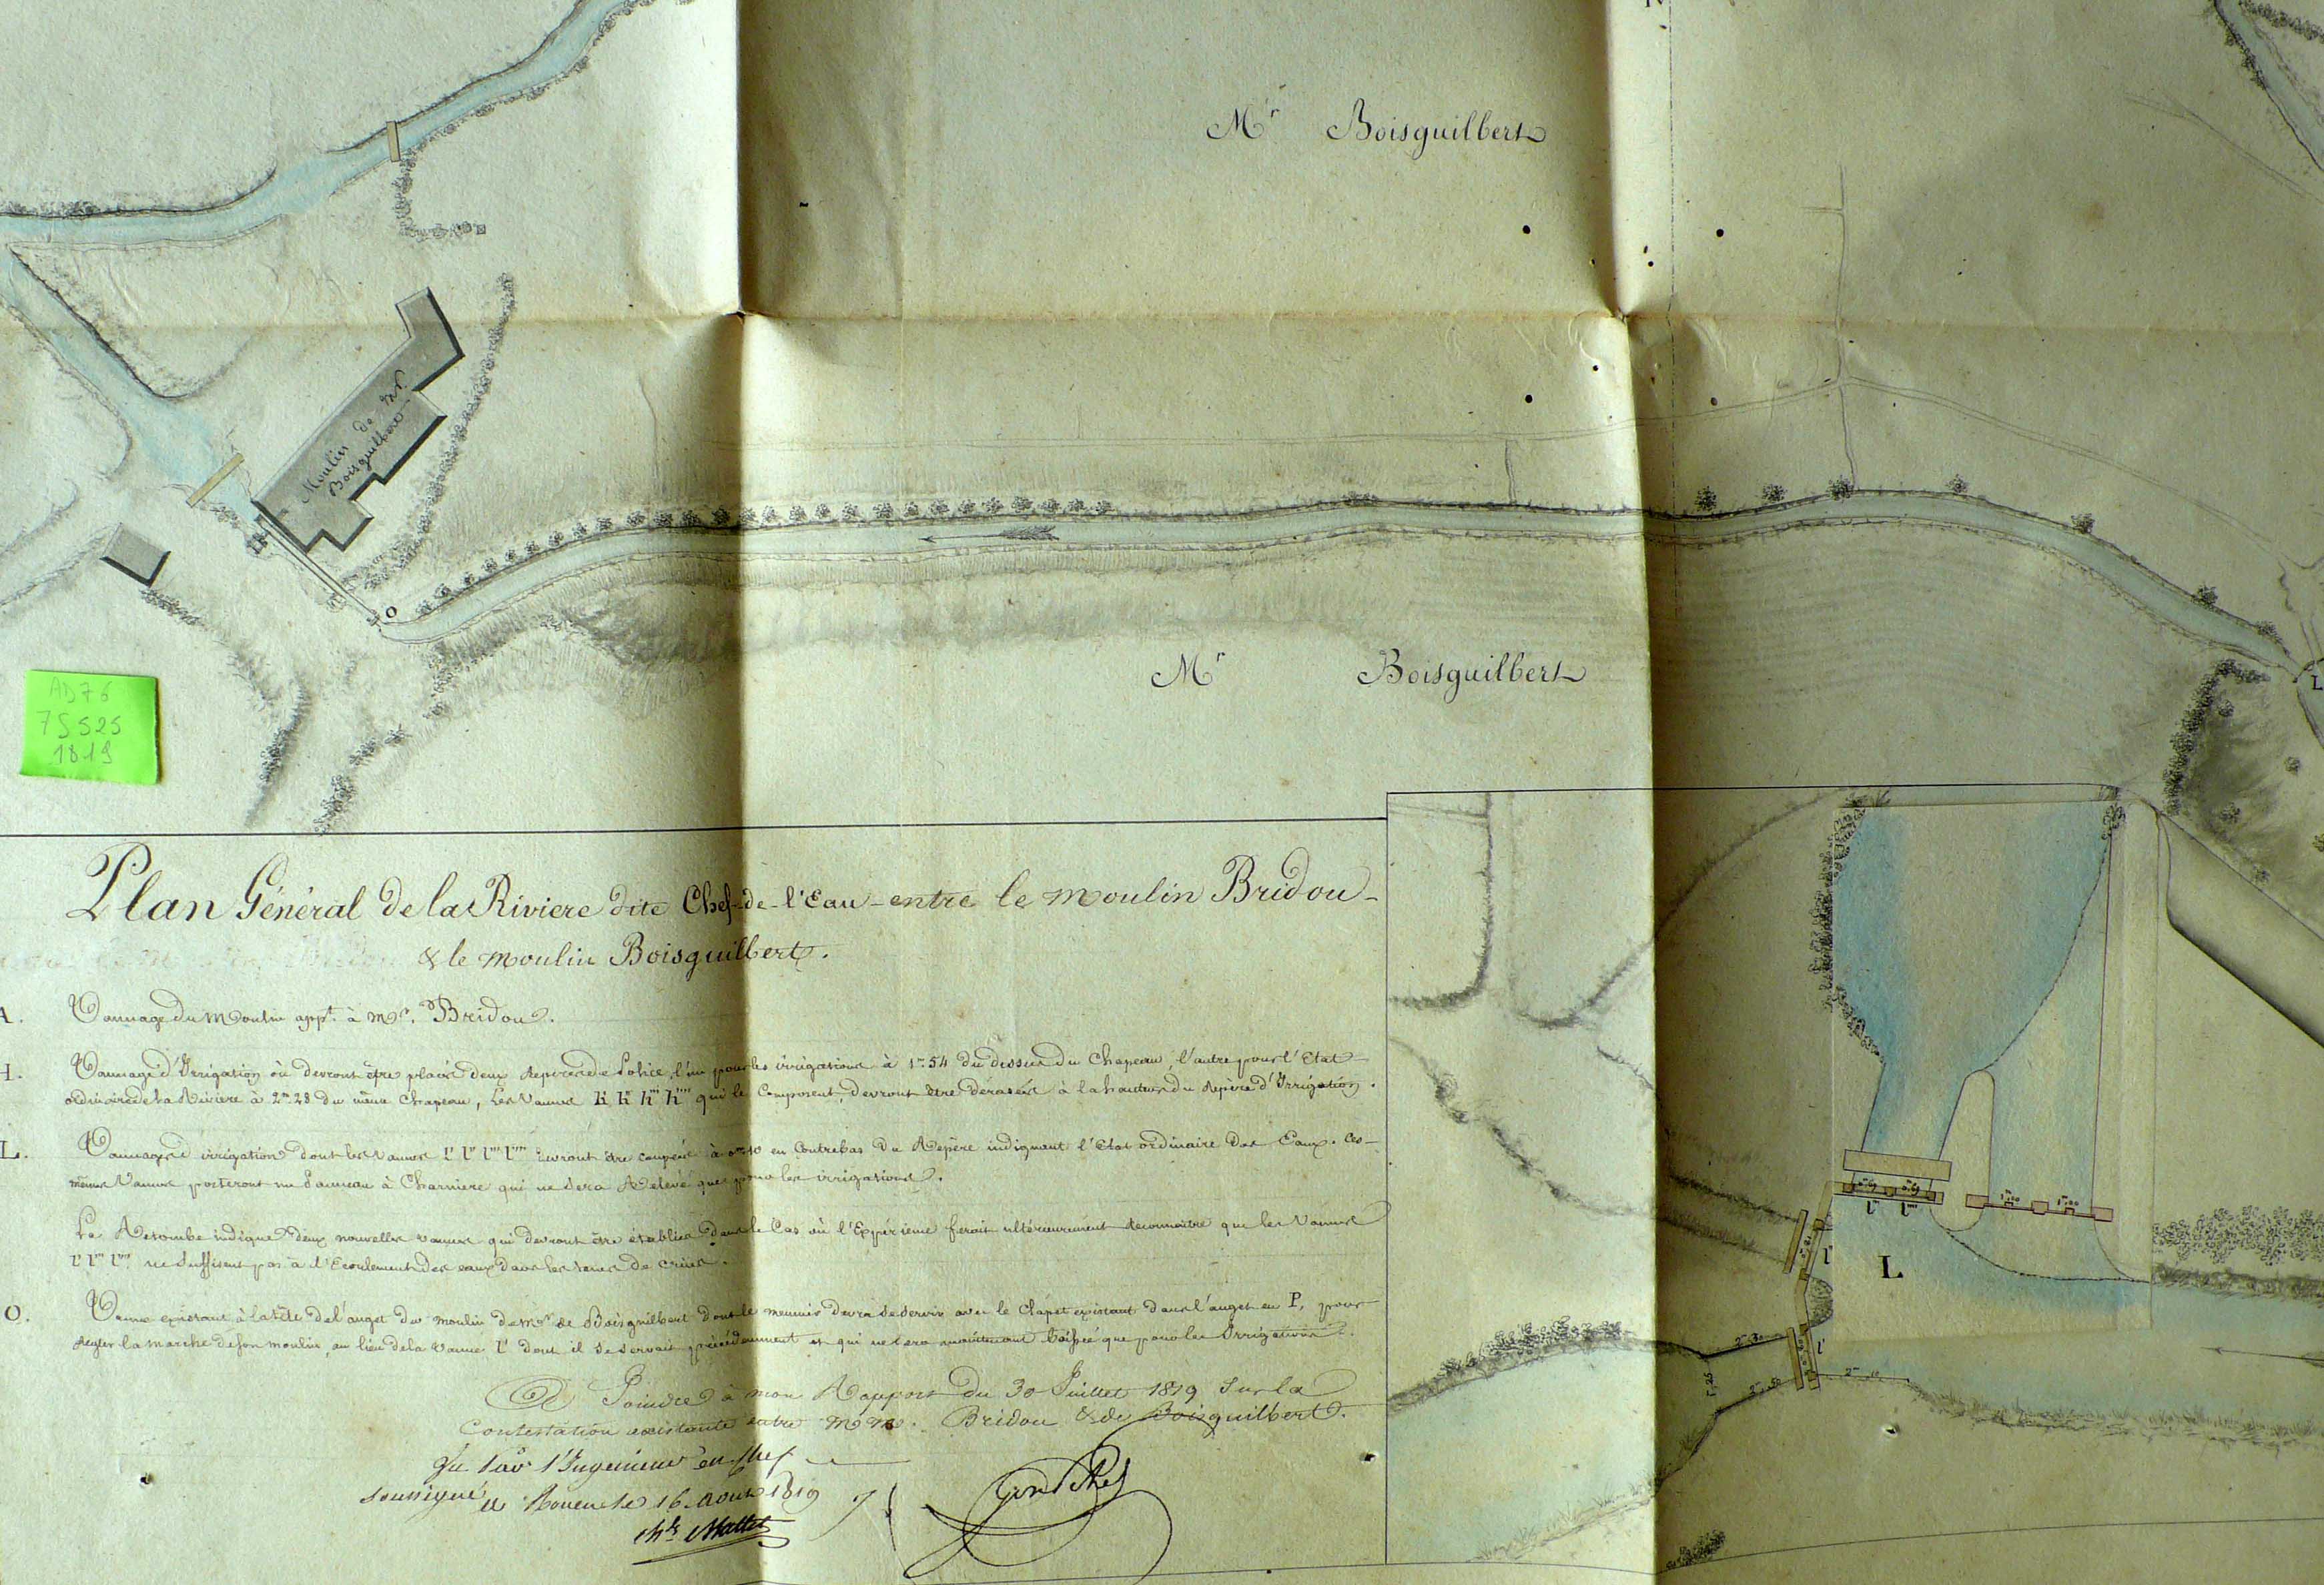 Mr Boisguilbert
Moulin de Mr
Boisguilbert
O
Mr Boisguilbert
L
AD76
7S525
1819
Plan Général de la Riviere dite Chef-de-l'Eau - entre le moulin Bridou -
& le moulin Boisguilbert.
A. Vannage du Moulin appt. à Mr. Bridou.
H. Vannage d'Irrigation où devront être placés deux Repères de Police, l'un pour les irrigations à 1m 54 du dessus du Chapeau, l'autre pour l'Etat
ordinaire de la Rivière à 2m 28 du même Chapeau, Les Vannes h' h'' h''' h'''' qui le Composent, devront être dérasées à la hauteur du Repère d'Irrigation.
L. Vannage d'irrigation dont les vannes l' l'' l''' l'''' devront être coupées à en Contrebas du Repère indiquant l'Etat ordinaire des Eaux. Ces
mêmes Vannes porteront un Panneau à Charniere qui ne sera Relevé que pour les irrigations.
La Retombe indique deux nouvelles vannes qui devront être établies dans le Cas où l'Expérience ferait ultérieurement reconnaître que les Vannes
l'' l''' l'''' ne suffisent pas à l'Ecoulement des eaux dans les tems de crües.
O. Vanne existant à la tête de l'auget du moulin de Mr de Boisguilbert dont le meunier devra se servir avec le Clapet existant dans l'auget en P, pour
régler la marche de son moulin, au lieu de la vanne l' dont il se servait précédemment et qui ne sera maintenant baissée que pour les Irrigations.
Joindre à mon Rapport du 30 Juillet 1819 sur la
Contestation existante entre MM. Bridou & de Boisguilbert.
Vu par l'Ingenieur en chef
soussigné à Rouen le 16 Aout 1819
Chs Mallet
l''' l''''
l''
L
l'